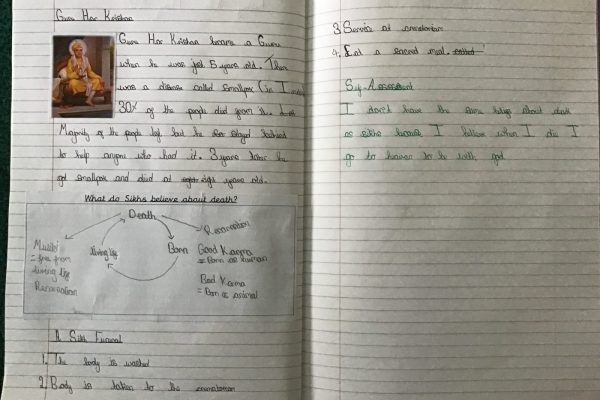 Guru Har Krishan
Guru Har Krishan became a Guru
when he was just 5 years old. There
was a disease called smallpox (in I
30% of the people died from it.
Majority of the people left but he stayed behind
to help anyone who had it. 3 years later he
got smallpox and died at years old.
What do Sikhs believe about death?
Death
Reincarnation
Mukti
= free from
living life
Reincarnation
living life
Born
Good Karma
= Born as human
Bad Karma
= Born as animal
A Sikh Funeral
1. The body is washed
2. Body is taken to the crematorium
3 Service at crematorium
4. Eat a sacred meal.
Self-Assessment
I don't have the same beliefs about death
as sikhs because I believe when I die I
go to heaven to be with god